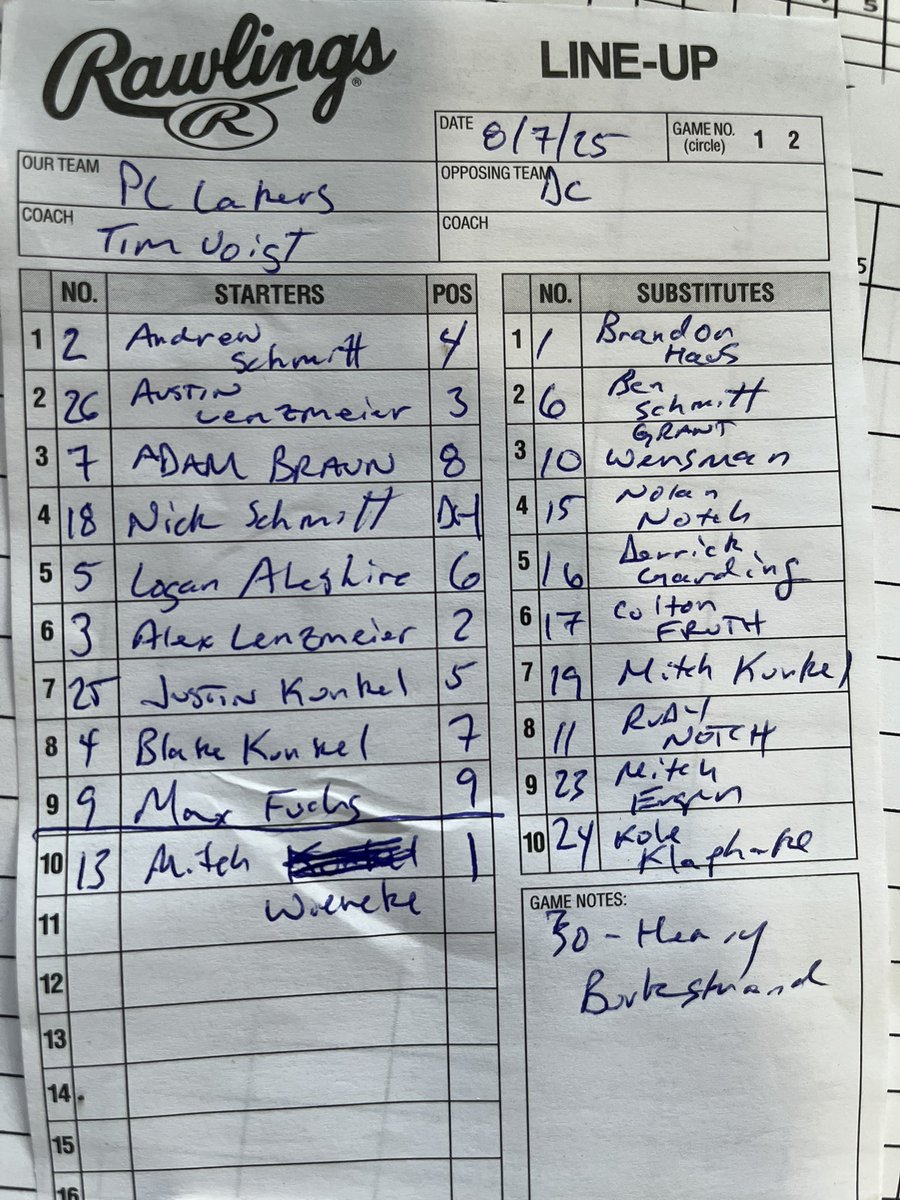 Rawlings ®
R
LINE-UP
DATE 8/7/25
GAME NO. (circle) 1 2
OUR TEAM PC Lakers
OPPOSING TEAM DC
COACH Tim Voigt
COACH
NO. STARTERS POS
1 2 Andrew Schmitt 4
2 26 Austin Lenzmeier 3
3 7 ADAM BRAUN 8
4 18 Nick Schmitt DH
5 5 Logan Aleshire 6
6 3 Alex Lenzmeier 2
7 25 Justin Kunkel 5
8 4 Blake Kunkel 7
9 9 Max Fuchs 9
10 13 Mitch Wieneke 1
11
12
13
14
15
16
NO. SUBSTITUTES
1 1 Brandon Haus
2 6 Ben Schmitt
3 10 GRANT Wensman
4 15 Nolan Notch
5 16 Derrick Garding
6 17 Colton FRUTH
7 19 Mitch Kunkel
8 11 Rudy NOTCH
9 23 Mitch Ergen
10 24 Kole Klaphake
GAME NOTES:
30 - Henry
Burkstrand
5
5